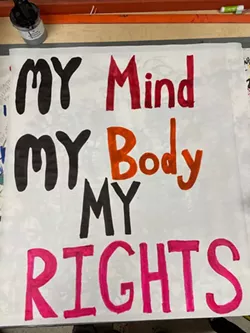 MY Mind
MY Body
MY
RIGHTS